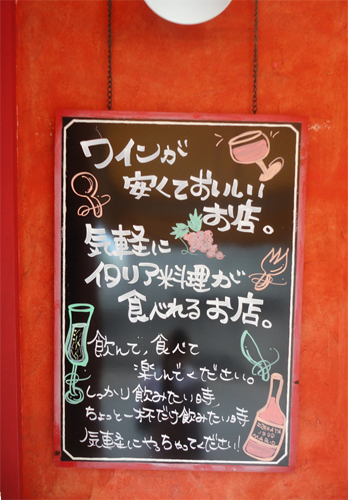 ワインが
安くておいしい
お店。
気軽に
イタリア料理が
食べれるお店。
飲んで、食べて
楽しんでください。
しっかり飲みたい時、
ちょっと一杯だけ飲みたい時
気軽にやろちゃってください!